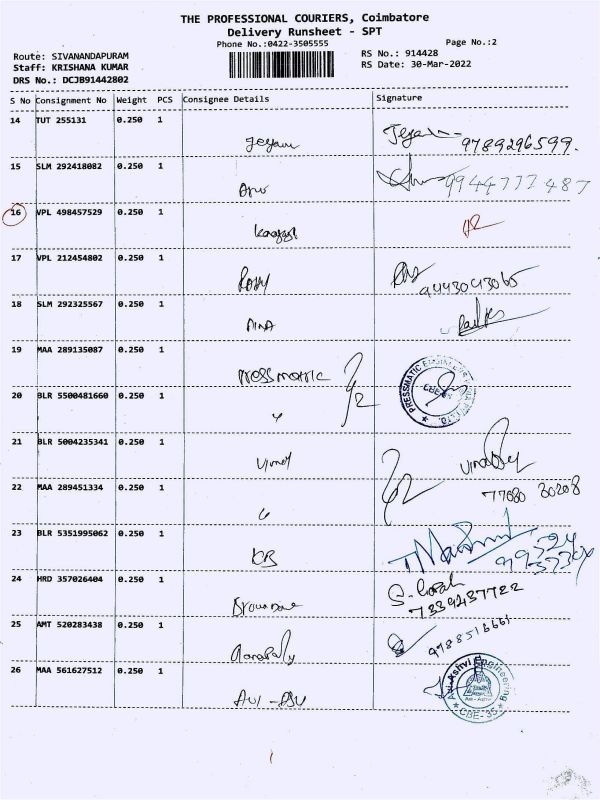 THE PROFESSIONAL COURIERS, Coimbatore
Delivery Runsheet - SPT
Phone No.:0422-3505555
Page No.:2
Route: SIVANANDAPURAM
RS No.: 914428
Staff: KRISHANA KUMAR
RS Date: 30-Mar-2022
DRS No.: DCJB91442802
S No Consignment No Weight PCS Consignee Details Signature
14 TUT 255131 0.250 1
Jeyam
9789296599.
15 SLM 292418082 0.250 1
9944777487
16 VPL 498457529 0.250 1
17 VPL 212454802 0.250 1
Rosy
9443043065
18 SLM 292325567 0.250 1
DINA
19 MAA 289135087 0.250 1
Pressmatric
PRESSMATIC
CBE
20 BLR 5500481660 0.250 1
21 BLR 5004235341 0.250 1
22 MAA 289451334 0.250 1
77080 30208
23 BLR 5351995062 0.250 1
24 HRD 357026404 0.250 1
7339437722
25 AMT 520283438 0.250 1
9788516661
26 MAA 561627512 0.250 1
Avi-Ashvi Engineer
CBE-35